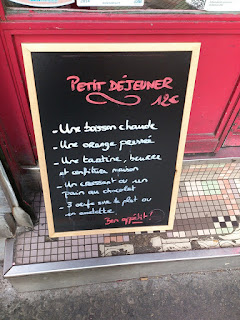 PETIT DÉJEUNER
12€
- Une boisson chaude
- Une orange pressée
- Une tartine, beurre
et confiture maison
- Un croissant ou un
pain au chocolat
- 3 oeufs sur le plat ou
en omelette
Bon appétit !